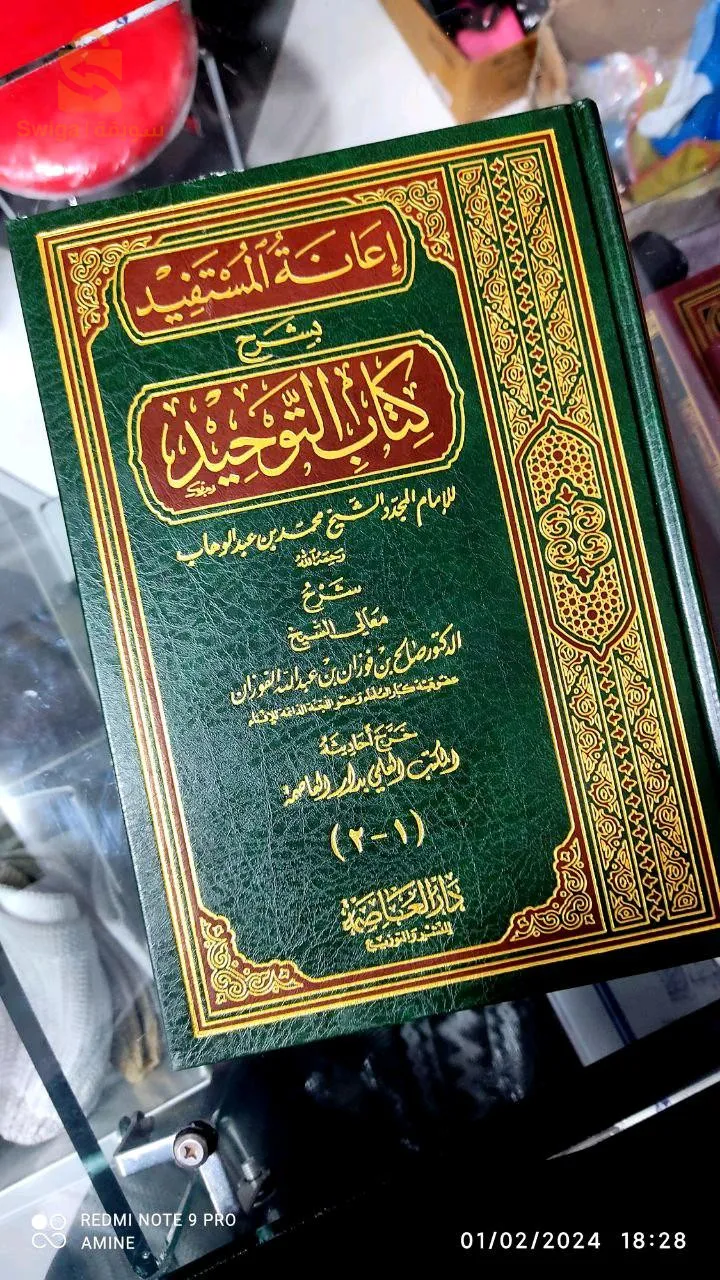 Swiqa سويقة
إعَانَةُ المُسْتَفِيْد
بشَرح
كِتَابِ التَّوحِيْدِ
للإمام المجدد الشيخ محمد بن عبد الوهاب
رحمه الله
شَرْحُ
معَالي الشيخ
الدكتور صالح بن فوزان بن عبد الله الفوزان
عضو هيئة كبار العلماء وعضو اللجنة الدائمة للإفتاء
خَرَّجَ أحَاديثهُ
المكتب العلمي بدار العاصمة
(١-٢)
دَارُ العَاصِمَة
للنشر والتوزيع
REDMI NOTE 9 PRO
AMINE
01/02/2024 18:28